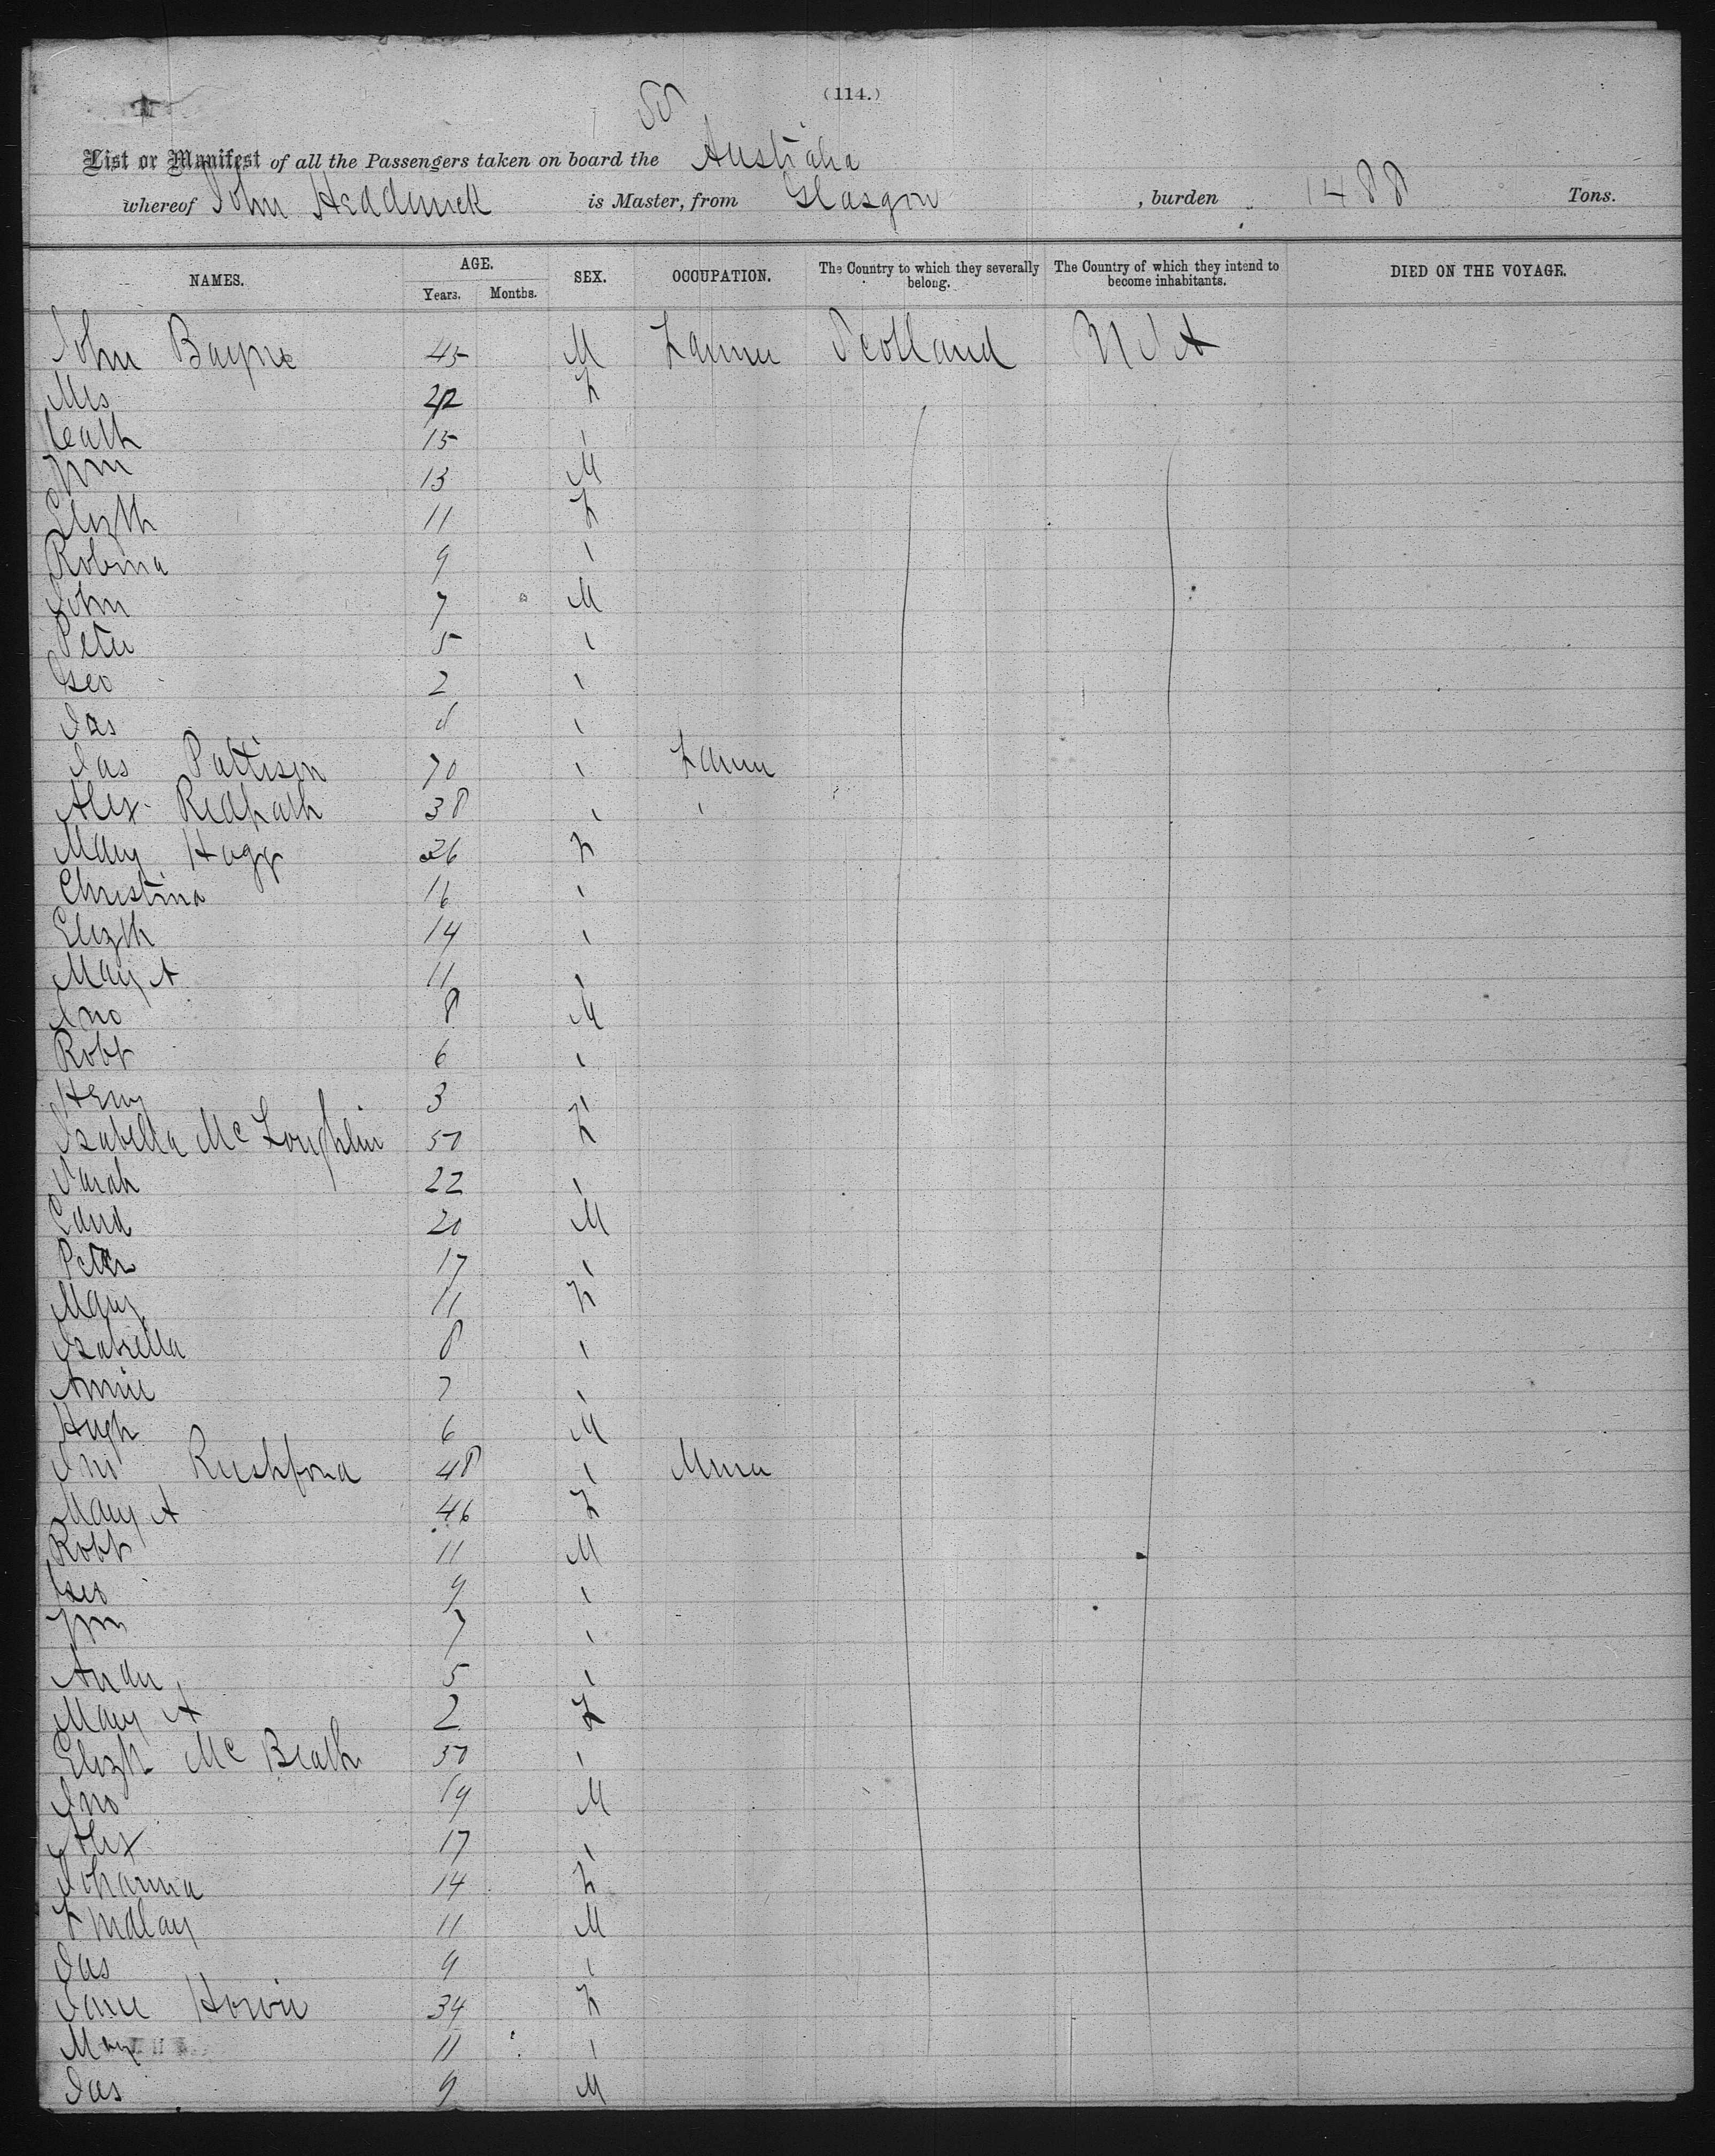 (114.)
SS
List or Manifest of all the Passengers taken on board the Australia
whereof John Hedderwick is Master, from Glasgow , burden 1488 Tons.
NAMES. AGE. SEX. OCCUPATION. The Country to which they severally belong. The Country of which they intend to become inhabitants. DIED ON THE VOYAGE.
Years. Months.
John Bayne 45 M Farmer Scotland U S A
Mrs 42 F
Cath 15 "
Wm 13 M
Elizth 11 F
Robina 9 "
John 7 M
Peter 5 "
Geo 2 "
Jas "
Jas Pattison 70 " Farmer
Alex Redpath 38 " "
Mary Hogg 36 F
Christina 16 "
Elizth 14 "
Mary A 11 "
Jno 8 M
Robt 6 "
Henry 3 "
Isabella McLoughlin 50 F
Sarah 22 "
Edwd 20 M
Peter 17 "
Mary 11 F
Isabella 8 "
Annie 7 "
Hugh 6 M
Jno Rushford 48 " Miner
Mary A 46 F
Robt 11 M
Geo 9 "
Wm 7 "
Andw 5 "
Mary A 2 F
Elizth McBeath 50 "
Jno 19 M
Alex 17 "
Johanna 14 F
Findlay 11 M
Jas 9 "
Jane Howie 34 F
Mary 11 "
Jas 9 M